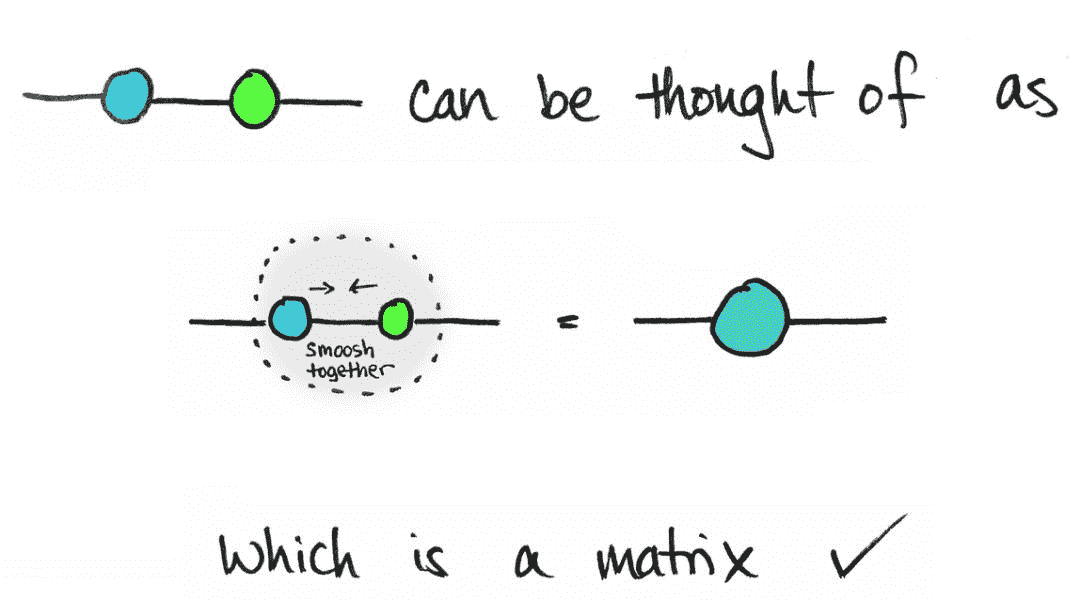 can be thought of as
smoosh
together
=
which is a matrix ✓